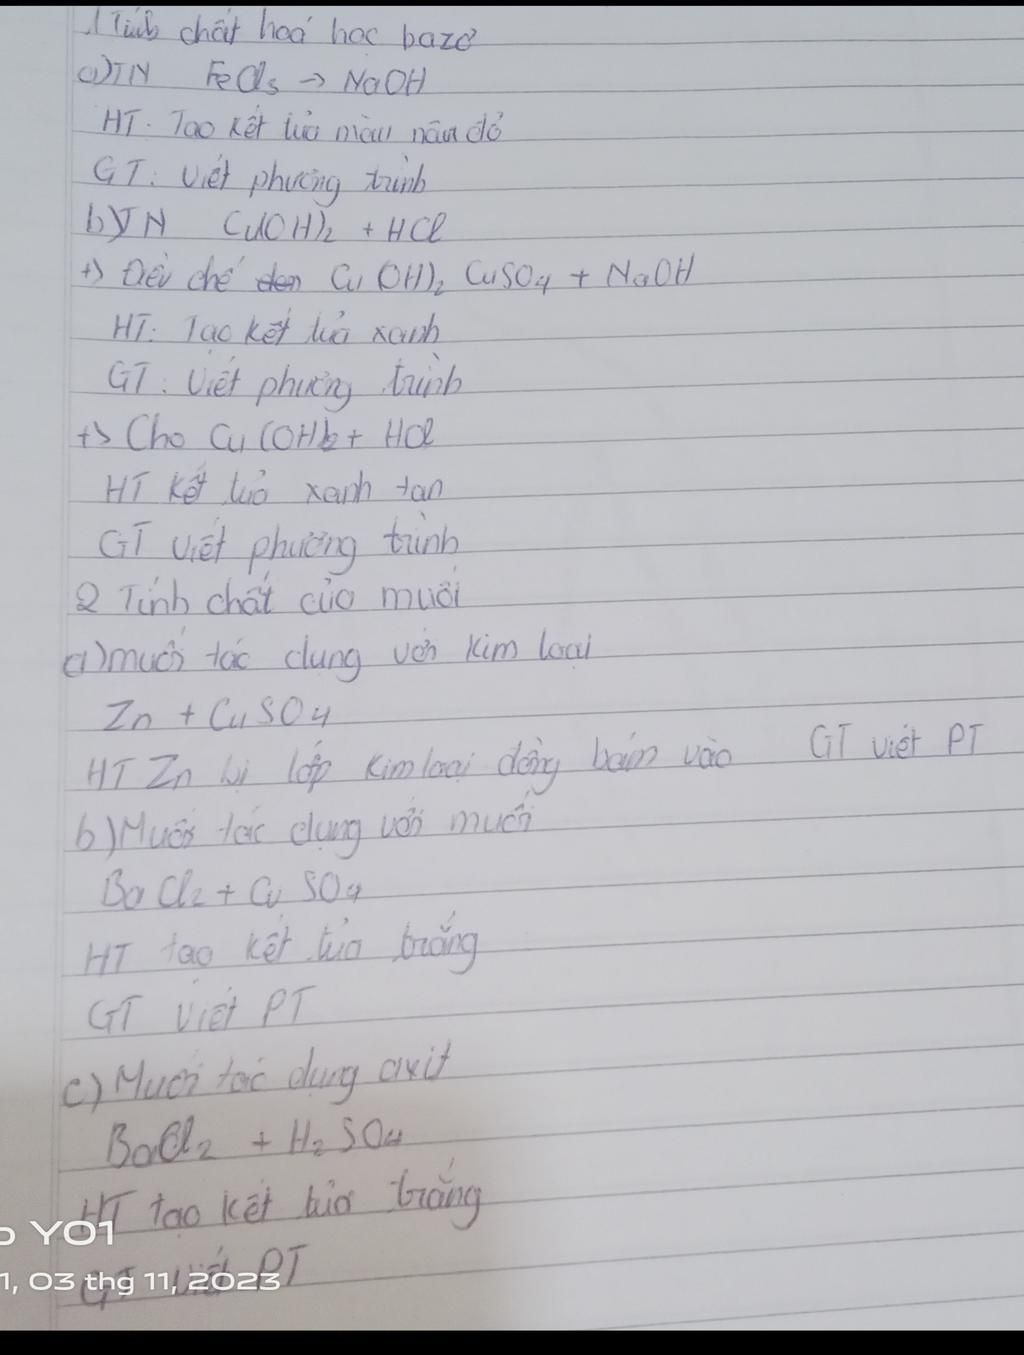 1 Tính chất hoá học bazơ
a) TN FeCl3 → NaOH
HT. Tạo kết tủa màu nâu đỏ
GT: Viết phương trình
b) TN Cu(OH)2 + HCl
+) Điều chế Cu(OH)2 CuSO4 + NaOH
HT: Tạo kết tủa xanh
GT: Viết phương trình
+) Cho Cu(OH)2 + HCl
HT kết tủa xanh tan
GT viết phương trình
2 Tính chất của muối
a) muối tác dụng với kim loại
Zn + CuSO4
HT Zn bị lớp kim loại đồng bám vào GT viết PT
b) Muối tác dụng với muối
BaCl2 + CuSO4
HT tạo kết tủa trắng
GT Viết PT
c) Muối tác dụng axit
BaCl2 + H2SO4
HT tạo kết tủa trắng
GT viết PT
Y01
1, 03 thg 11, 2023